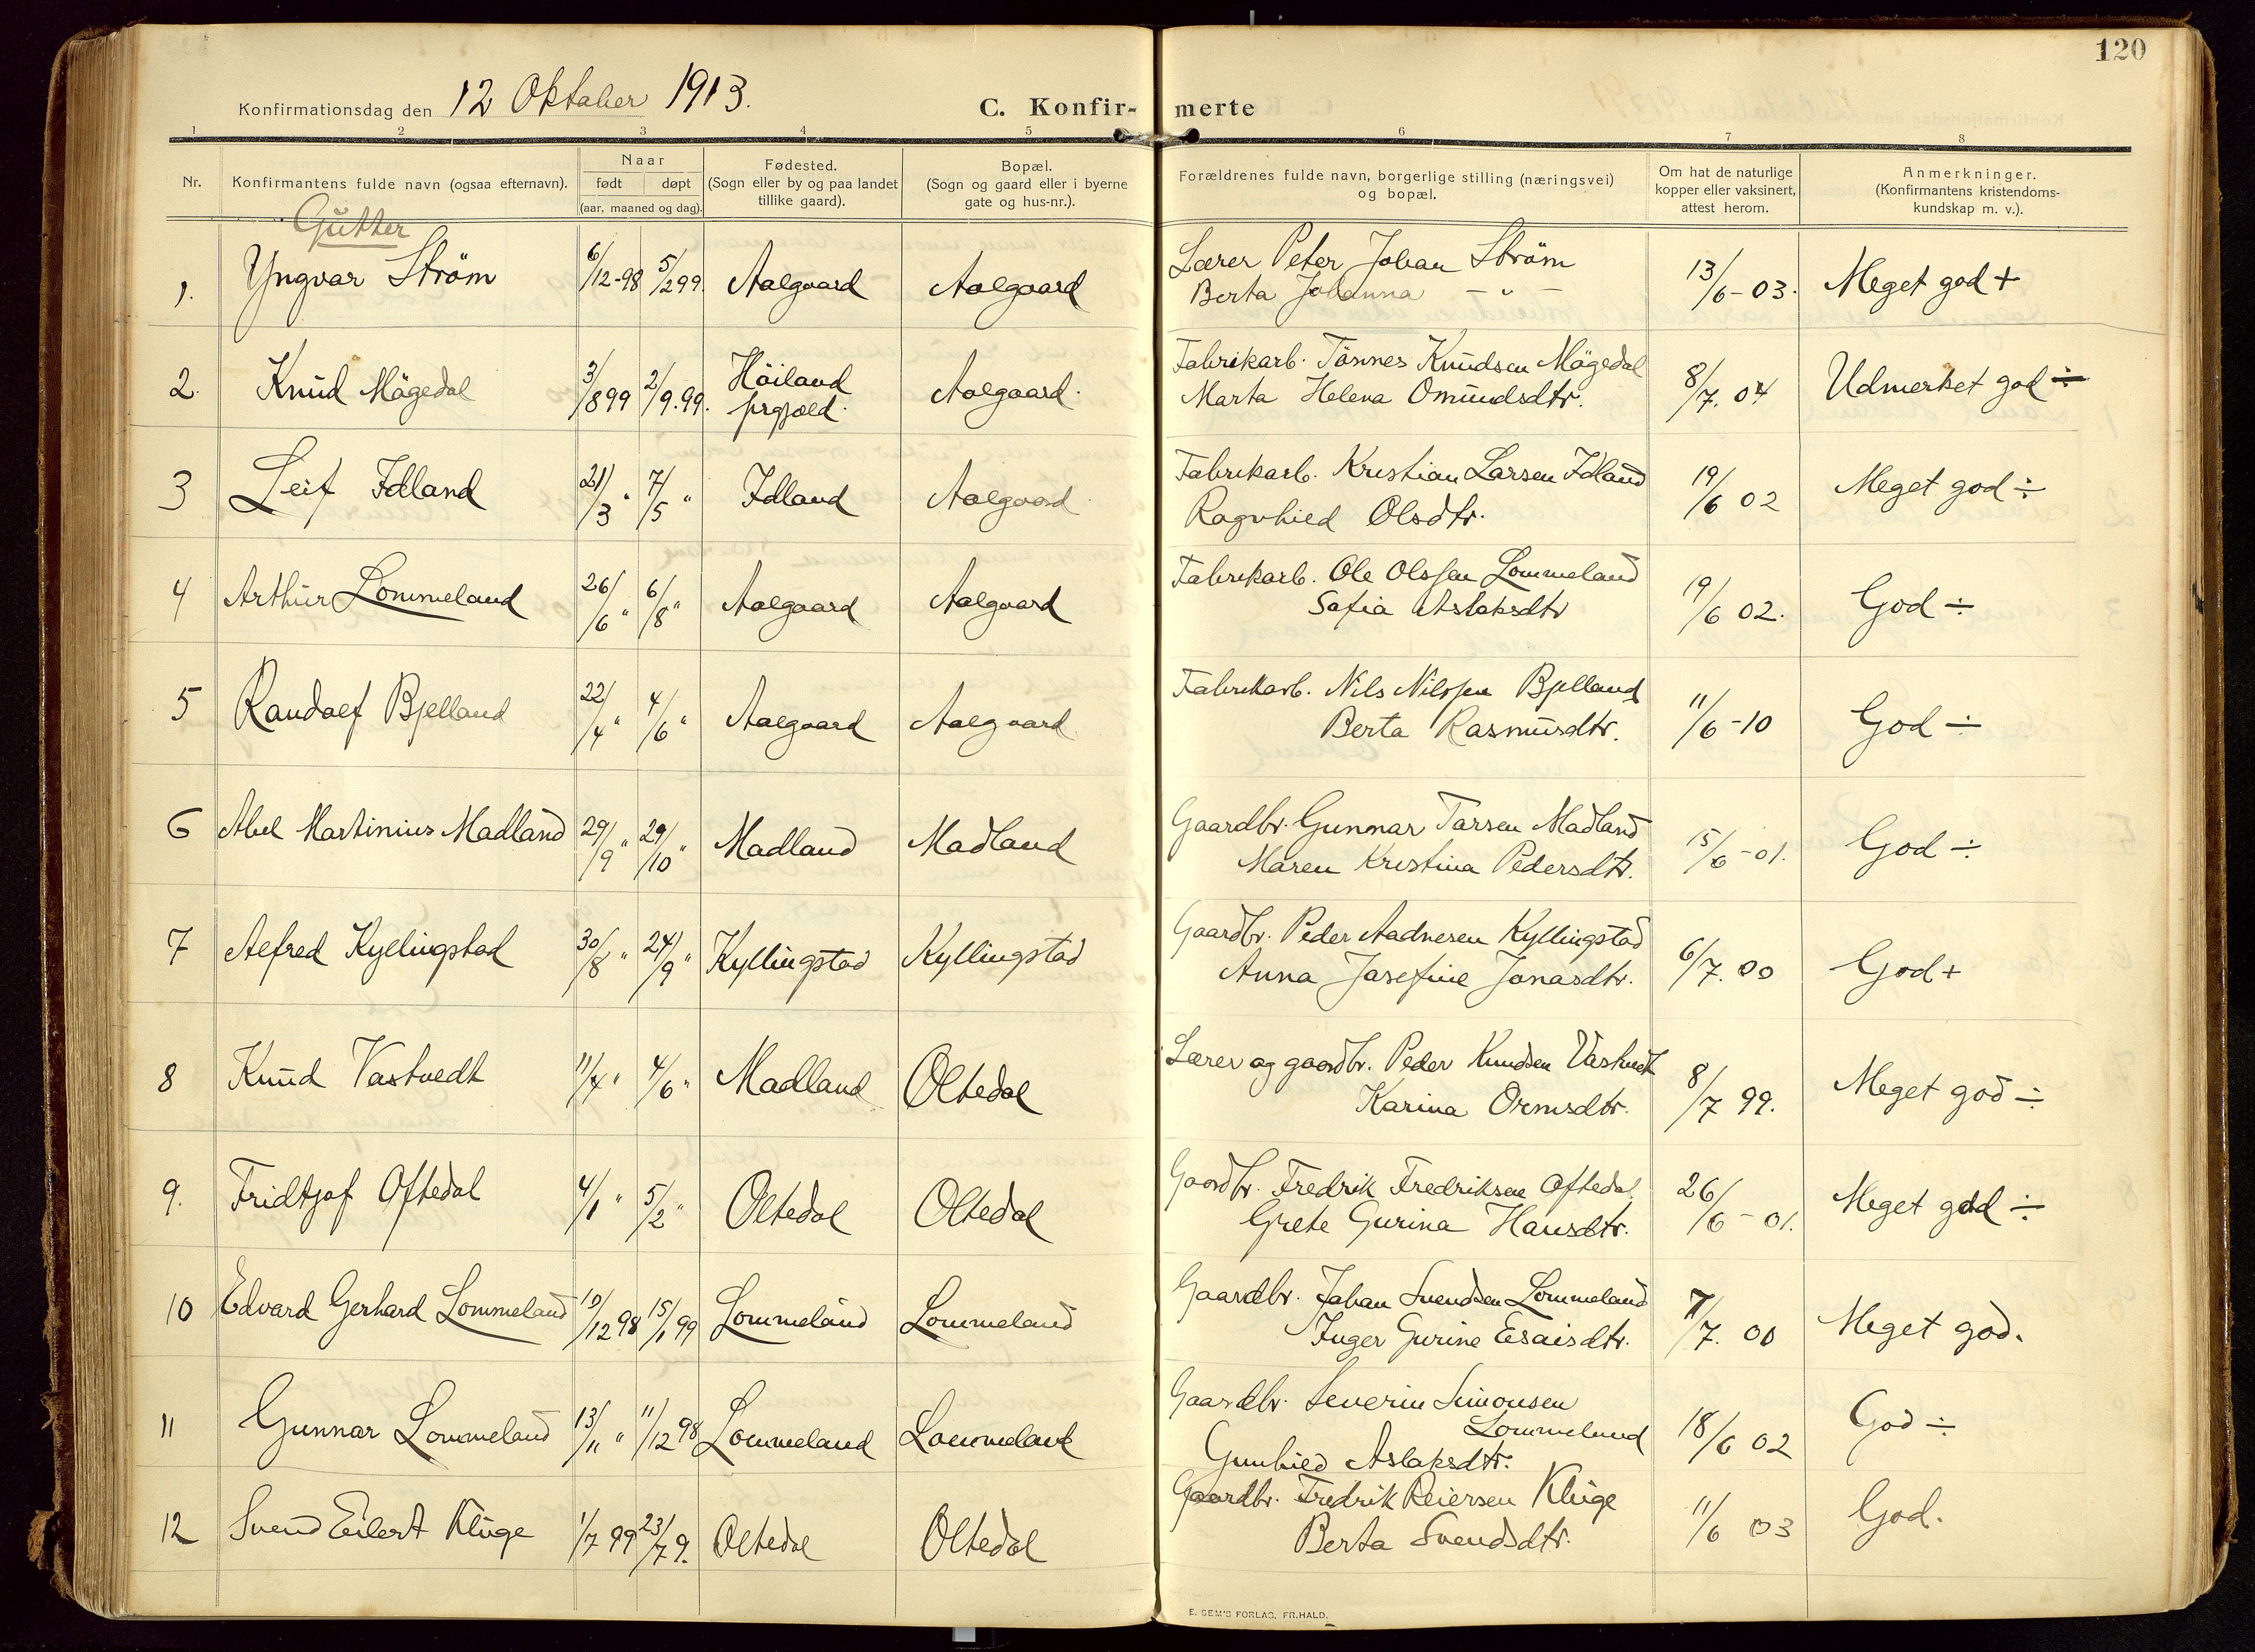 120
Konfirmationsdag den 12 Oktober 1913.
C. Konfir- merte
1 2 3 4 5 6 7 8
Nr.
Konfirmantens fulde navn (ogsaa efternavn).
Naar
født døpt
(aar, maaned og dag).
Fødested.
(Sogn eller by og paa landet
tillike gaard).
Bopæl.
(Sogn og gaard eller i byerne
gate og hus-nr.).
Forældrenes fulde navn, borgerlige stilling (næringsvei)
og bopæl.
Om hat de naturlige
kopper eller vaksinert,
attest herom.
Anmerkninger.
(Konfirmantens kristendoms-
kundskap m. v.).
Gutter
1. Yngvar Ström 6/12-98 5/2 99. Aalgaard Aalgaard Lærer Peter Johan Ström 13/6-03. Meget god +
Berta Johanna — " —
2. Knud Mögedal 3/8 99 2/9. 99. Höiland Aalgaard. Fabrikarb. Tönnes Knudsen Mögedal 8/7. 04 Udmerket god ÷
prgjæld. Marta Helena Omundsdtr.
3 Leif Idland 21/3 " 7/5 " Idland Aalgaard Fabrikarb. Kristian Larsen Idland 19/6 02 Meget god ÷
Ragnhild Olsdtr.
4 Arthur Lommeland 26/6 " 6/8 " Aalgaard Aalgaard Fabrikarb. Ole Olsen Lommeland 19/6 02. God ÷
Sofia Aslaksdtr
5 Randolf Bjelland 22/4 " 4/6 " Aalgaard Aalgaard Fabrikarb. Nils Nilssen Bjelland 11/6-10 God ÷
Berta Rasmusdtr.
6 Abel Martinius Madland 29/9 " 29/10 " Madland Madland Gaardbr. Gunnar Tarsen Madland 15/6-01. God ÷
Maren Kristina Pedersdtr.
7 Alfred Kyllingstad 30/8 " 24/9 " Kyllingstad Kyllingstad Gaardbr. Peder Aadnesen Kyllingstad 6/7. 00 God +
Anna Josefine Jonasdtr.
8 Knud Vastvedt 11/4 " 4/6 " Madland Oltedal Lærer og gaardbr. Peder Knudsen Vastvedt 8/7 99. Meget god ÷
Karina Ormsdtr.
9. Fridtjof Oftedal 4/1 " 5/2 " Oltedal Oltedal Gaardbr. Fredrik Fredriksen Oftedal 26/6-01. Meget god ÷
Grete Gurina Hansdtr.
10 Edvard Gerhard Lommeland 10/12 98 15/1 99 Lommeland Lommeland Gaardbr. Johan Svendsen Lommeland 7/7. 00 Meget god.
Inger Gurine Esaisdtr.
11 Gunnar Lommeland 13/11 " 11/12 98 Lommeland Lommeland Gaardbr. Severin Simonsen 18/6 02 God ÷
Lommeland
Gunhild Aslaksdtr.
12 Svend Eilert Kluge 1/7 99 23/7 9. Oltedal Oltedal Gaardbr. Fredrik Reiersen Kluge 11/6 03 God.
Berta Svendsdtr.
E. SEM'S FORLAG, FR.HALD.